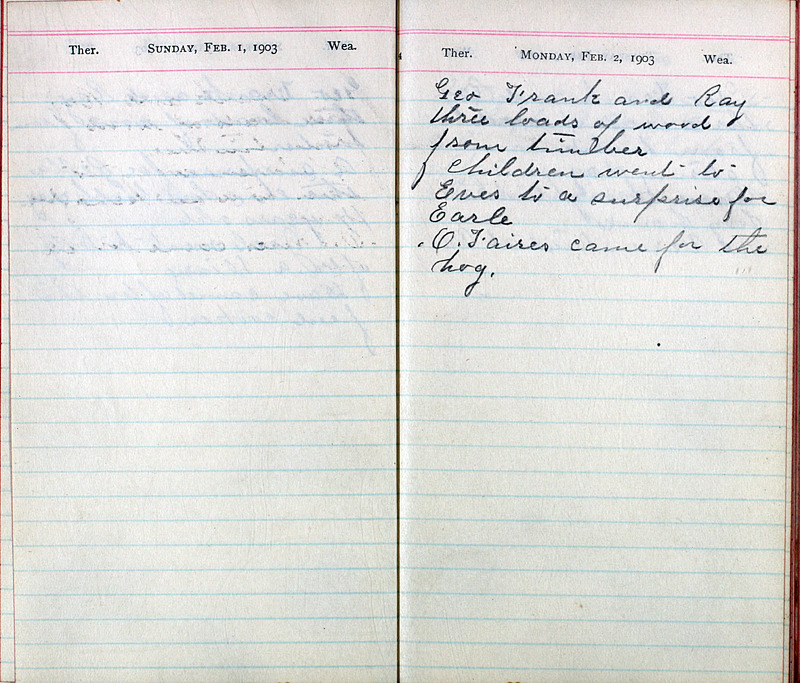 Ther. SUNDAY, FEB. 1, 1903 Wea.
Ther. MONDAY, FEB. 2, 1903 Wea.
Geo Frank and Ray
three loads of wood
from timber
Children went to
Eves to a surprise for
Earle
O. Faires came for the
hog.